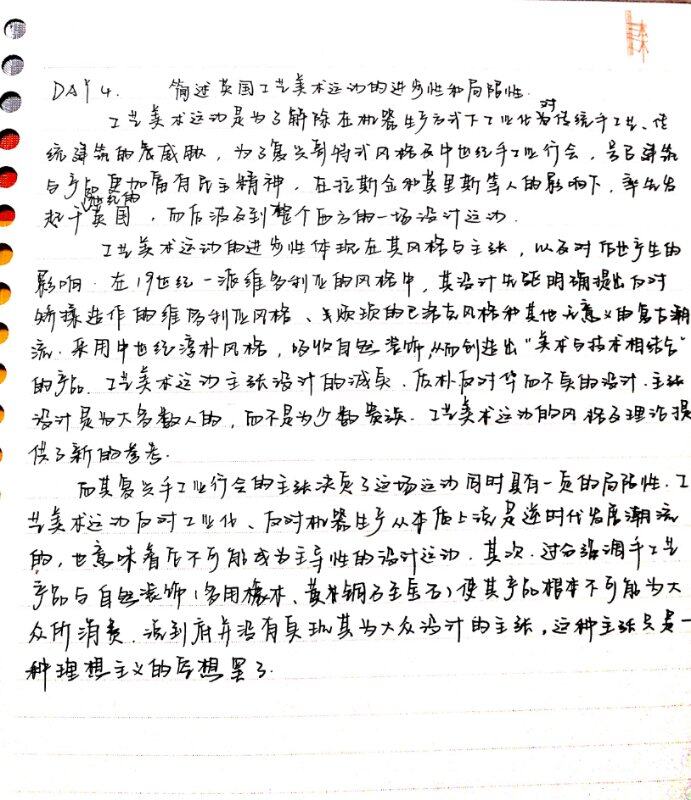 DAY 4. 简述英国工艺美术运动的进步性和局限性.
工艺美术运动是为了解除在机器生产方式下工业化对传统手工艺、传
统建筑的威胁, 为了复兴哥特式风格及中世纪手工业行会, 号召建筑
与产品更加富有民主精神, 在拉斯金和莫里斯等人的影响下, 率先发
起于英国, 而后波及到整个西方的一场设计运动.
工艺美术运动的进步性体现在其风格与主张, 以及对后世产生的
影响. 在19世纪一派维多利亚的风格中, 其设计先驱明确提出反对
矫揉造作的维多利亚风格、繁琐的巴洛克风格和其他无意义的复古潮
流. 采用中世纪淳朴风格, 吸收自然装饰, 从而创造出"美术与技术相结合"
的产品. 工艺美术运动主张设计的诚实. 反对华而不实的设计. 主张
设计是为大多数人的, 而不是为少数贵族. 工艺美术运动的风格及理论提
供了新的参考.
而其复兴手工业行会的主张决定了这场运动同时具有一定的局限性. 工
艺美术运动反对工业化、反对机器生产从本质上说是逆时代发展潮流
的, 也意味着它不可能成为主导性的设计运动. 其次. 过分强调手工艺
产品与自然装饰(多用橡木、黄铜至宝石)使其产品根本不可能为大
众所消费. 说到底并没有实现其为大众设计的主张, 这种主张只是一
种理想主义的空想罢了.